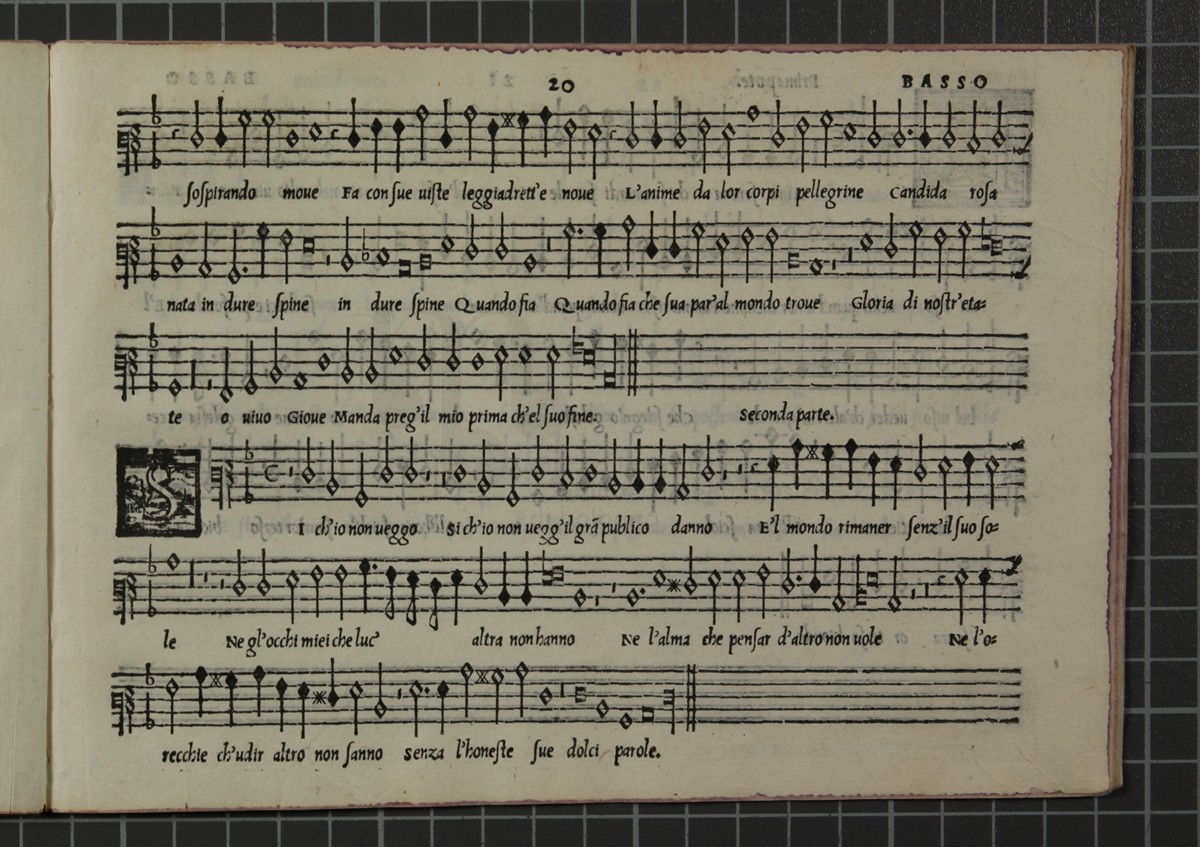 20 BASSO
sospirando moue Fa con sue uiste leggiadrett'e noue L'anime da lor corpi pellegrine Candida rosa
nata in dure spine in dure spine Quando fia Quando fia che sua par'al mondo troue Gloria di nostr'eta=
te o uiuo Gioue Manda preg'il mio prima ch'el suo fine. Seconda parte.
SI ch'io non ueggo Si ch'io non uegg'il grã publico danno E'l mondo rimaner senz'il suo so=
le Ne gl'occhi miei che luc' altra non hanno Ne l'alma che pensar d'altro non uole Ne l'o=
recchie ch'udir altro non sanno senza l'honeste sue dolci parole.